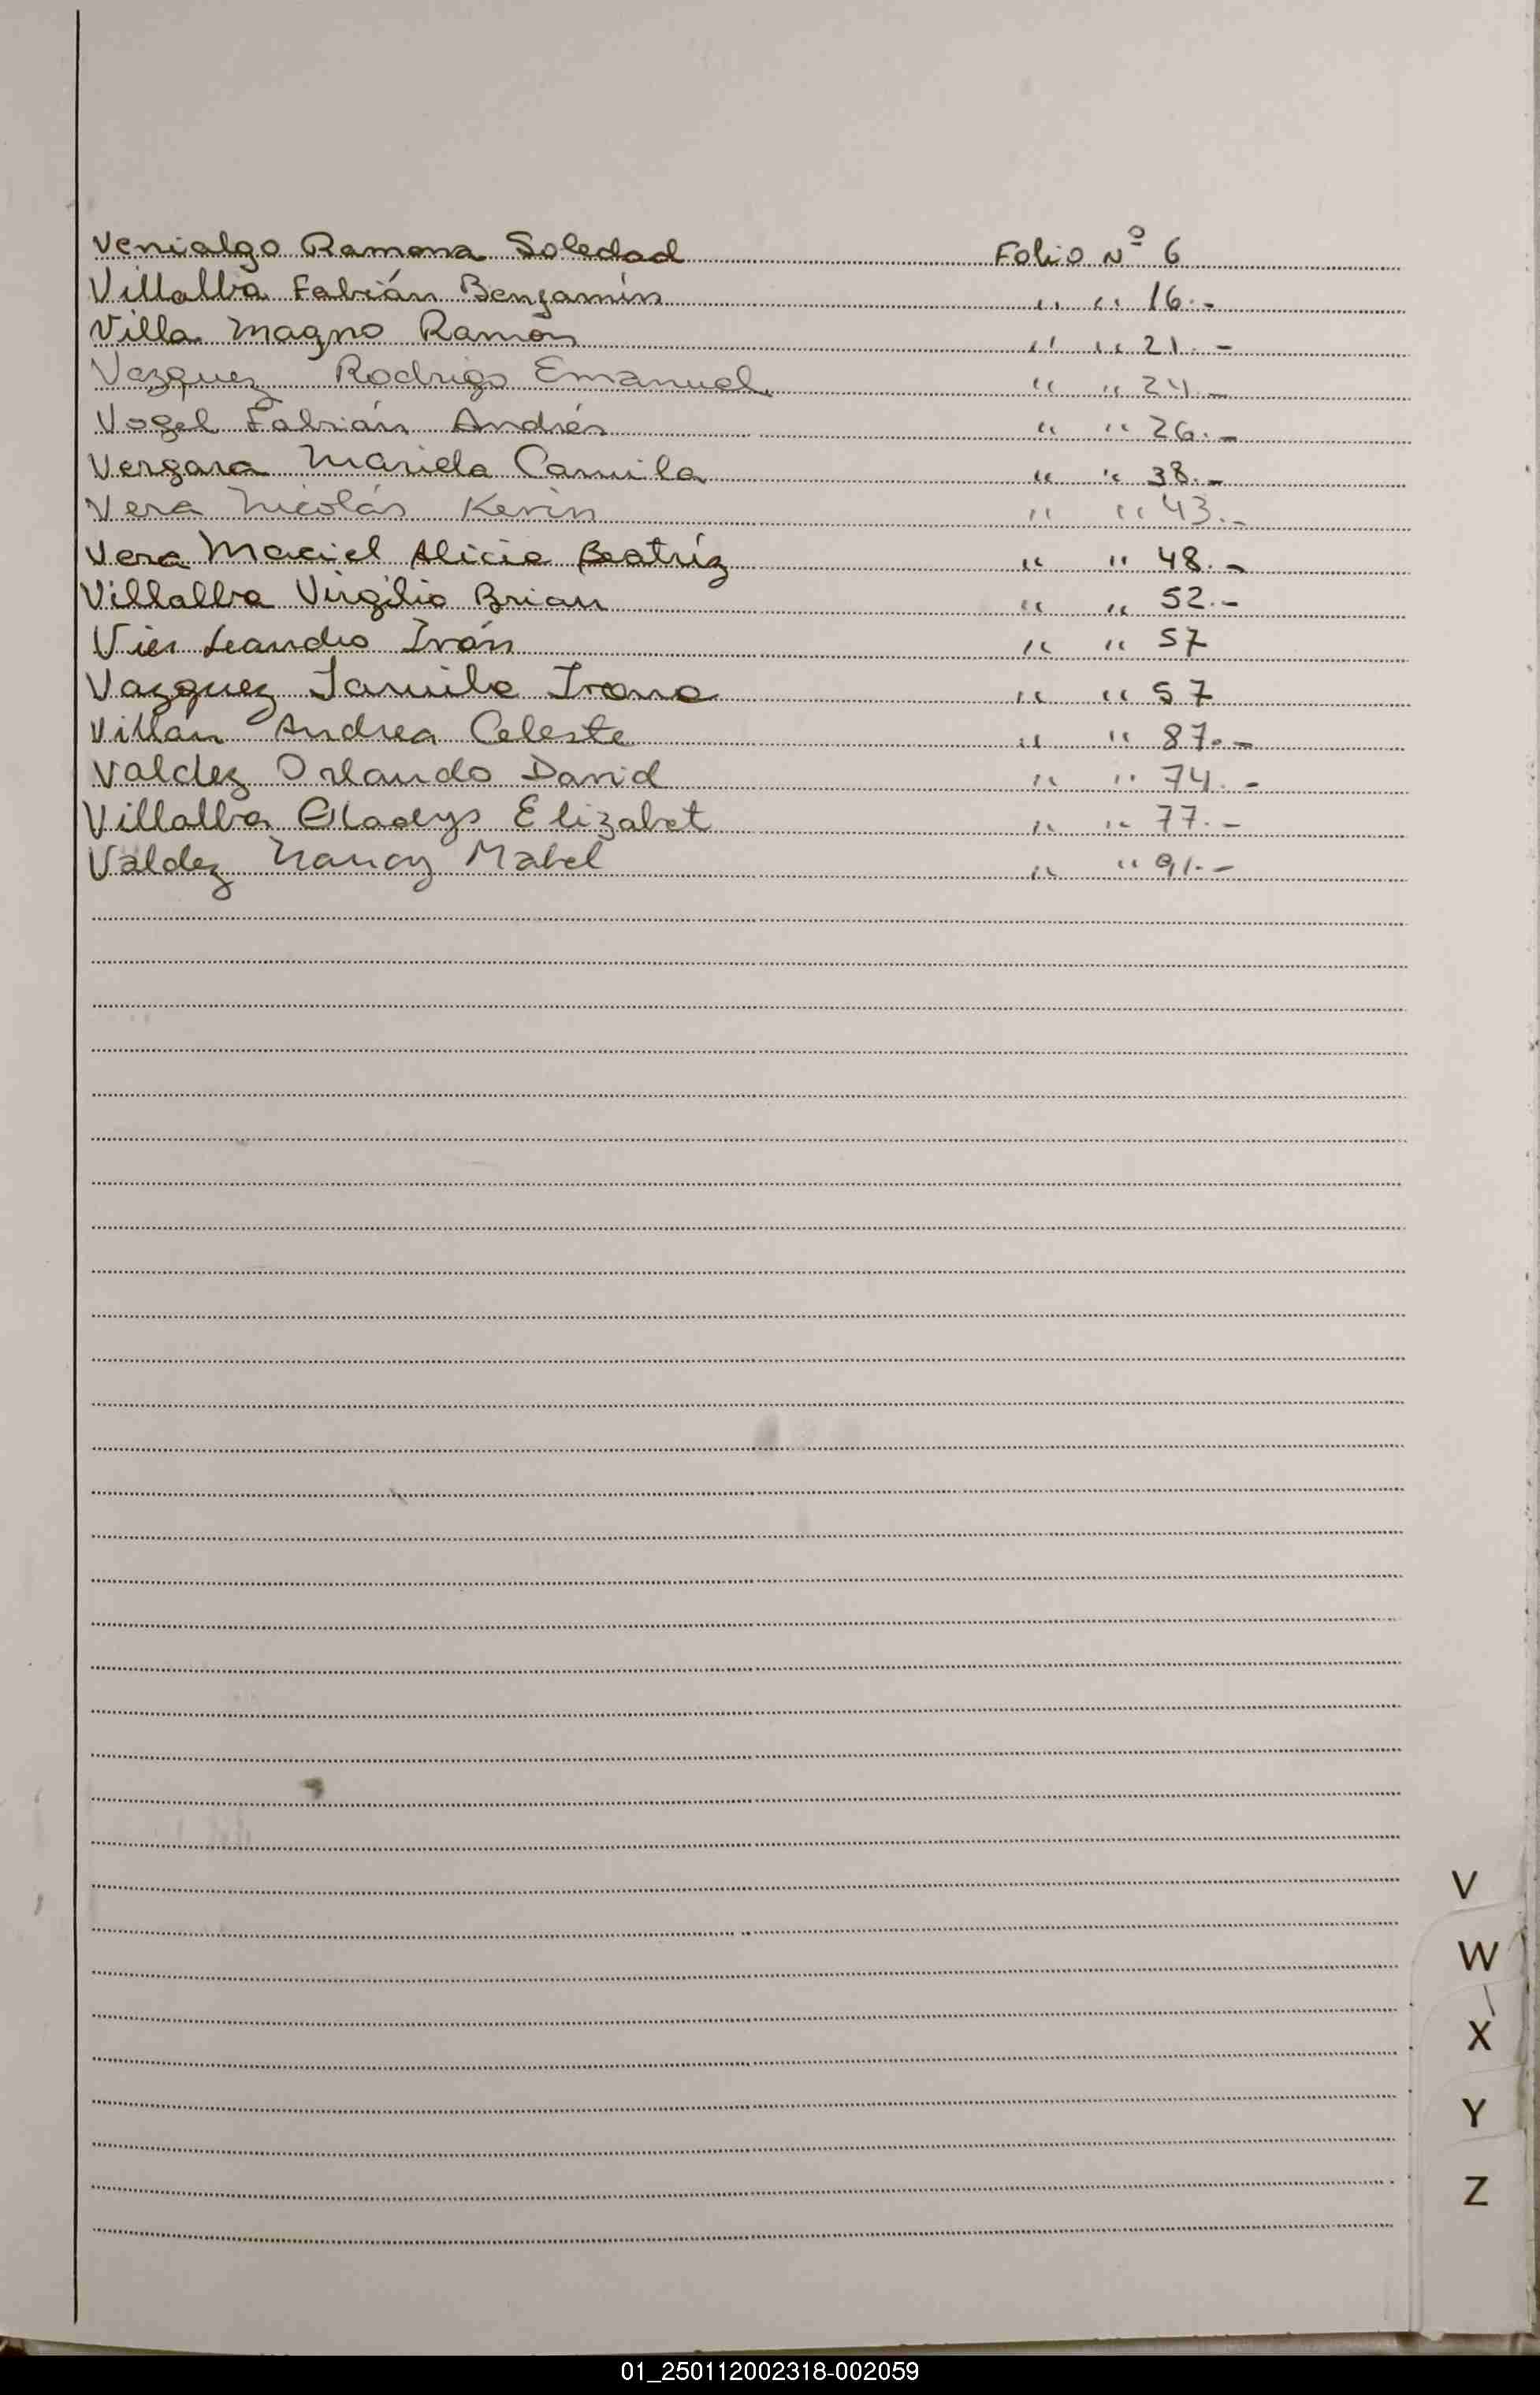 Venialgo Ramona Soledad Folio Nº 6
Villalba Fabián Benjamín " " 16.-
Villa Magno Ramón " " 21.-
Vazquez Rodrigo Emanuel " " 24.-
Vogel Fabián Andrés " " 26.-
Vergara Mariela Camila " " 38.-
Vera Nicolás Kevin " " 43.-
Vera Maciel Alicia Beatríz " " 48.-
Villalba Virgilio Brian " " 52.-
Vier Leandro Iván " " 57
Vazquez Jamila Ivana " " 57
Villan Andrea Celeste " " 87.-
Valdez Orlando David " " 74.-
Villalba Gladys Elizabet " " 77.-
Valdez Nancy Mabel " " 91.-
V
W
X
Y
Z
01_250112002318-002059